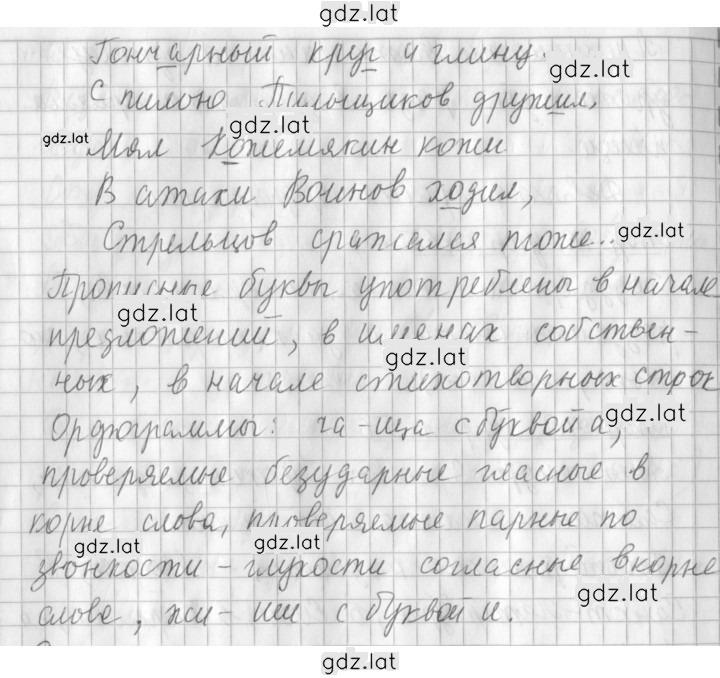 gdz.lat
Гончарный круг и глину.
gdz.lat
С пилою Пильщиков дружил,
gdz.lat
gdz.lat
Мял Кожемякин кожи
В атаки Воинов ходил,
Стрельцов сражался тоже..
gdz.lat
Прописные буквы употреблены в начале
gdz.lat
предложений, в именах собствен-
gdz.lat
ных, в начале стихотворных строк
Орфограммы: ча-ща с буквой а,
gdz.lat
проверяемые безударные гласные в
корне слова, проверяемые парные по
gdz.lat
gdz.lat
звонкости-глухости согласные в корне
gdz.lat
слова, жи-ши с буквой и.
gdz.lat